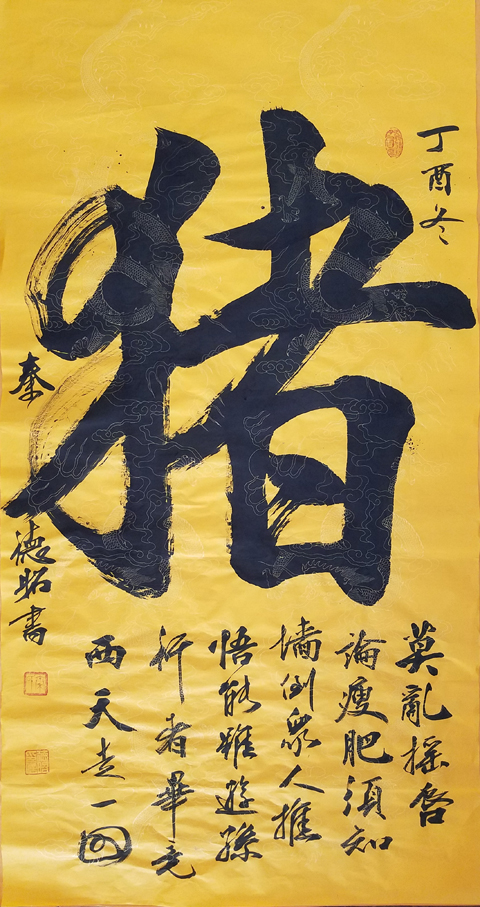 丁酉冬
猪
莫亂搖唇
論瘦肥須知
墻倒衆人推
悟能雖遜孫
行者畢竟
西天走一回
秦德昭書